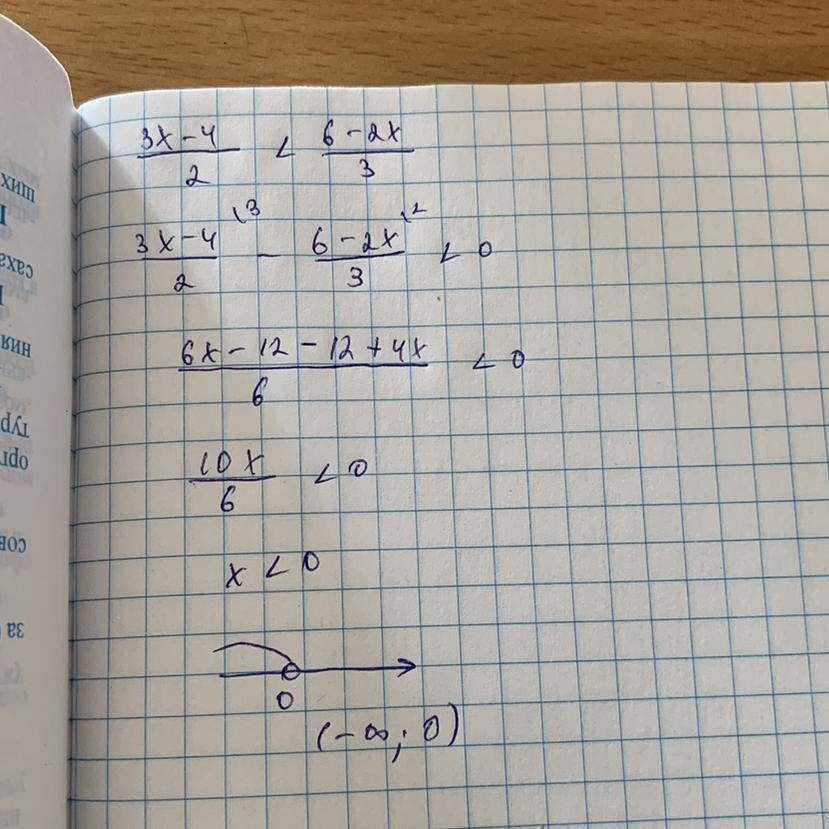 (3x-4)/2 < (6-2x)/3
(3x-4)/2 \3 - (6-2x)/3 \2 < 0
(6x-12-12+4x)/6 < 0
10x/6 < 0
x < 0
0
(-∞; 0)
ших
саха
ния
тур
орг
сов
за